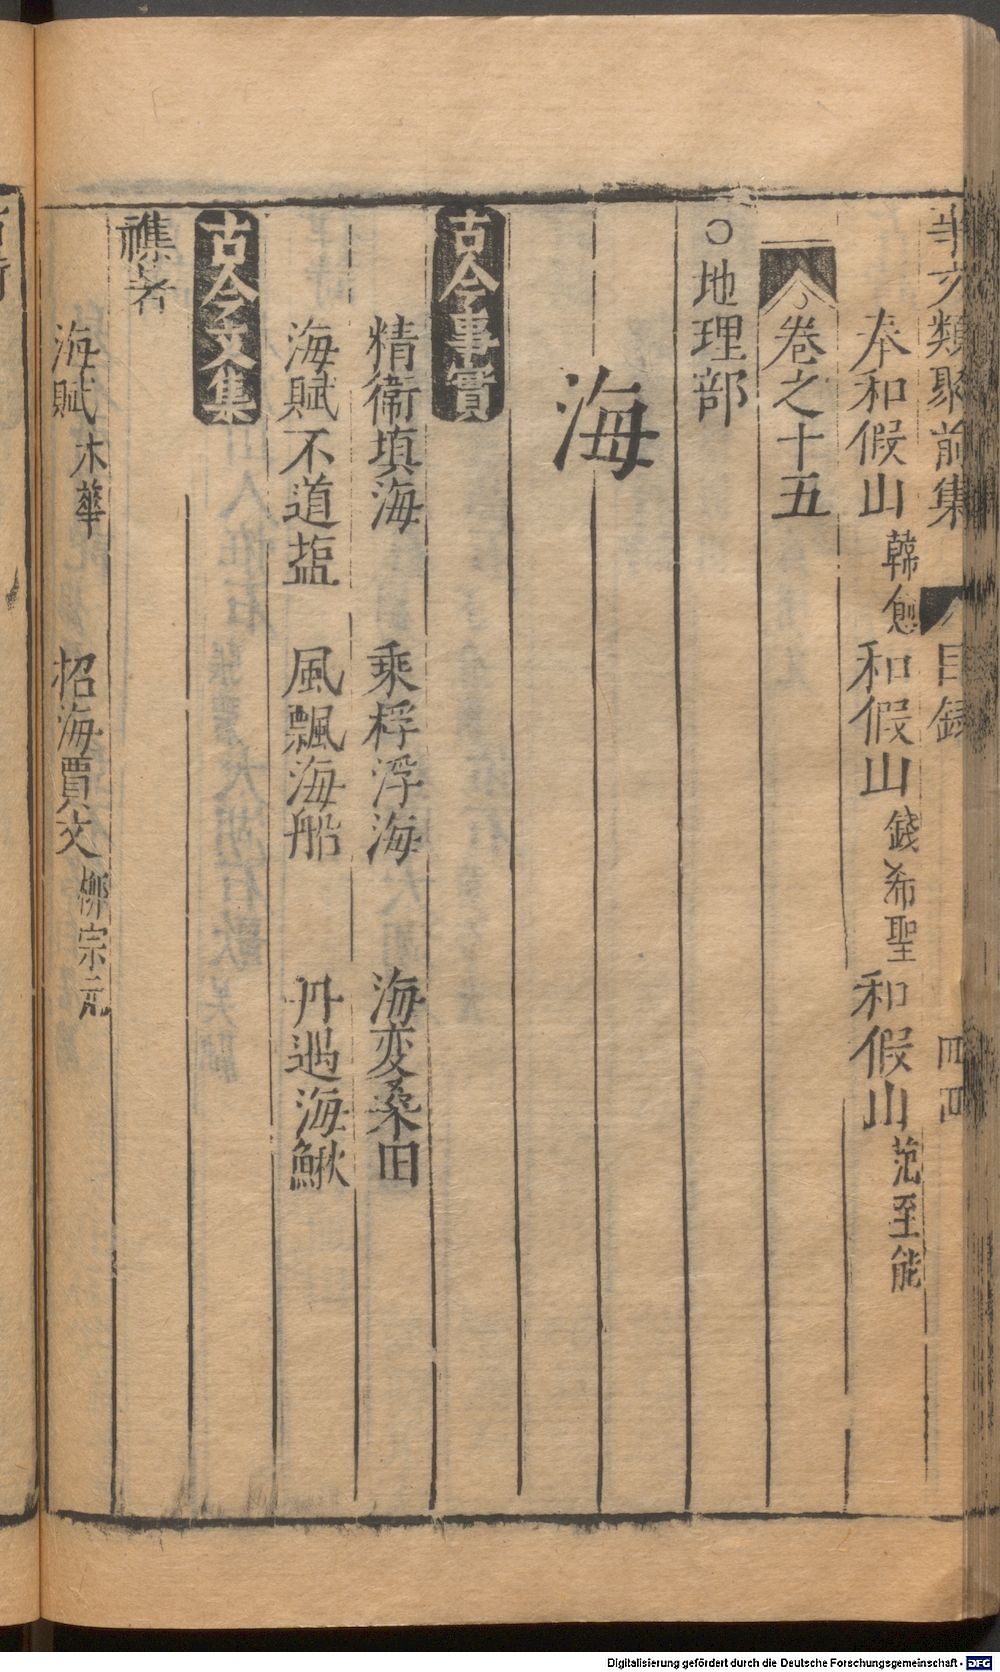 事文類聚前集 目録 四四
奉和假山 韓愈 和假山 錢希聖 和假山 范至能
卷之十五
○地理部
海
古今事實
精衛填海 乘桴浮海 海変桑田
海賦不道塩 風飄海船 丹過海鰍
古今文集
襍著
海賦 木華 招海賈文 柳宗元
Digitalisierung gefördert durch die Deutsche Forschungsgemeinschaft - DFG